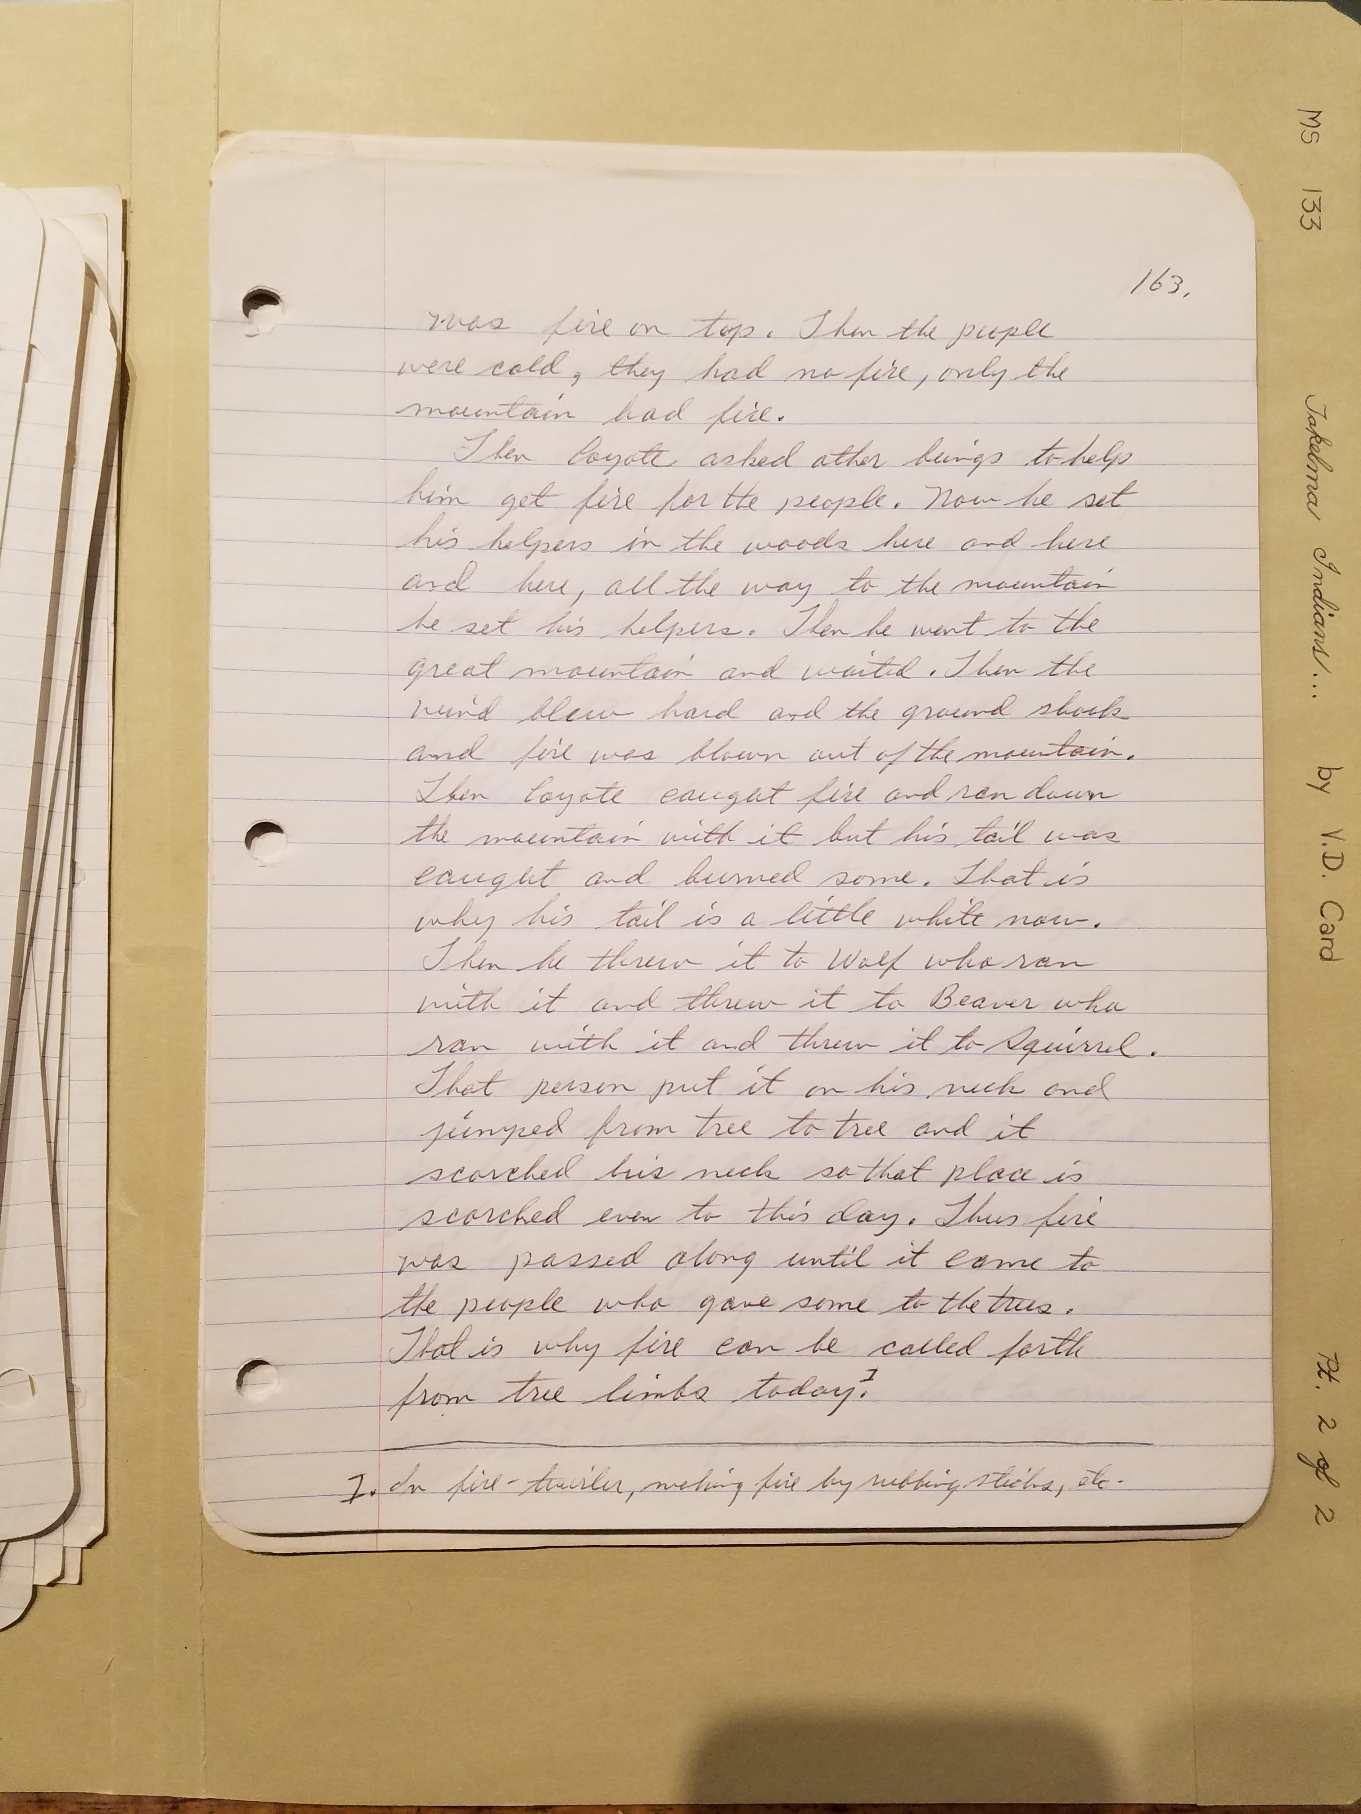 163.
was fire on top. Then the people
were cold, they had no fire, only the
mountain had fire.
Then Coyote asked other beings to help
him get fire for the people. Now he set
his helpers in the woods here and here
and here, all the way to the mountain
he set his helpers. Then he went to the
great mountain and waited. Then the
wind blew hard and the ground shook
and fire was blown out of the mountain.
Then Coyote caught fire and ran down
the mountain with it but his tail was
caught and burned some. That is
why his tail is a little white now.
Then he threw it to Wolf who ran
with it and threw it to Beaver who
ran with it and threw it to Squirrel.
That person put it on his neck and
jumped from tree to tree and it
scorched his neck so that place is
scorched even to this day. Thus fire
was passed along until it came to
the people who gave some to the trees.
That is why fire can be called forth
from tree limbs today.¹
1. In fire-twirler, making fire by rubbing sticks, etc.
MS 133 Takelma Indians... by V.D. Card Pt. 2 of 2